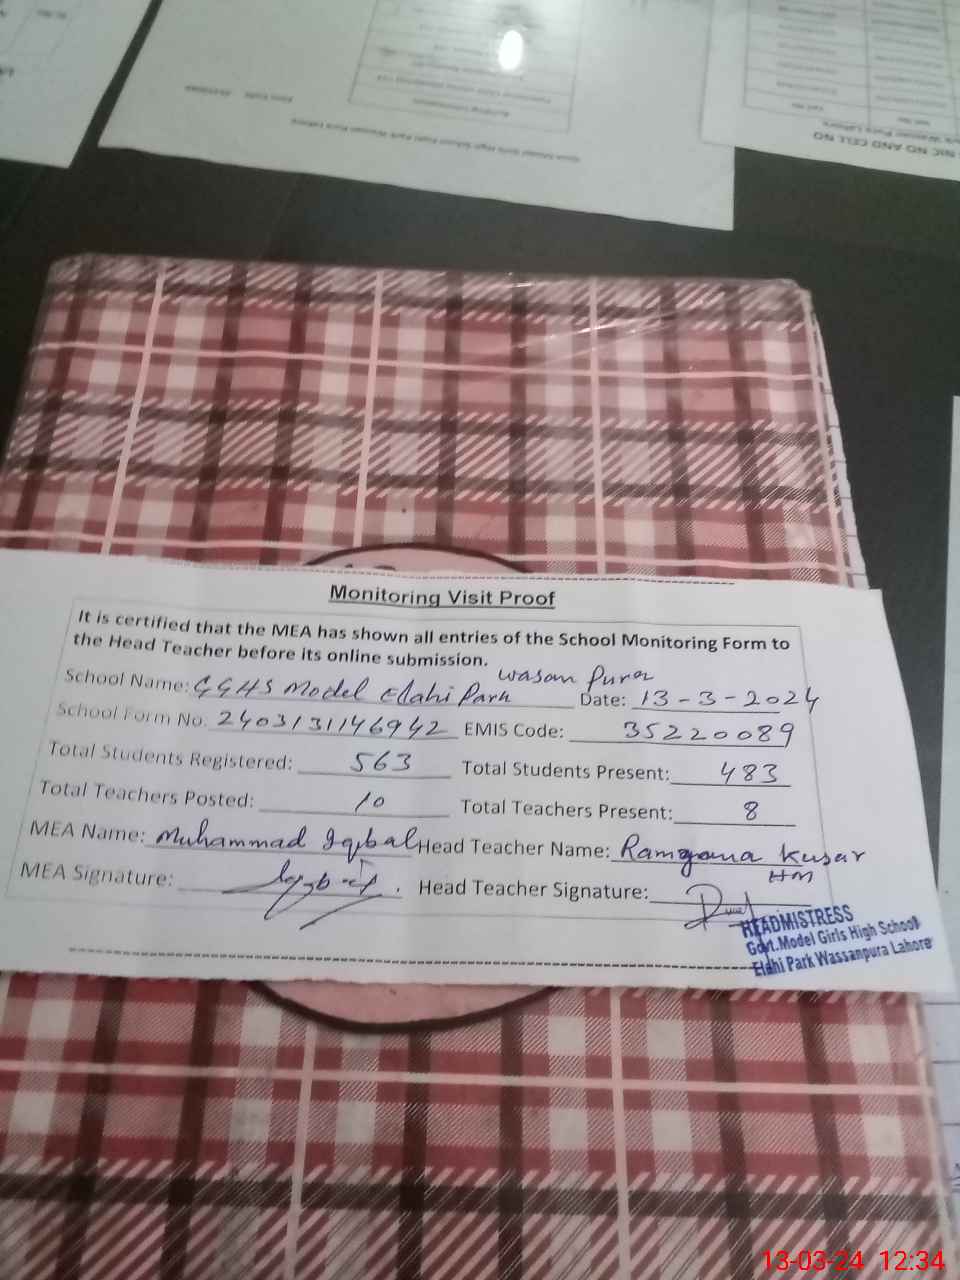 NIC NO AND CELL NO
Monitoring Visit Proof
It is certified that the MEA has shown all entries of the School Monitoring Form to
the Head Teacher before its online submission.
wasan Pura
School Name: GGHS Model Elahi Park Date: 13-3-2024
School Form No. 2403131146942 EMIS Code: 35220089
Total Students Registered: 563 Total Students Present: 483
Total Teachers Posted: 10 Total Teachers Present: 8
MEA Name: Muhammad Iqbal Head Teacher Name: Kusar
HM
MEA Signature: Head Teacher Signature:
HEADMISTRESS
Govt.Model Girls High School
Elahi Park Wassanpura Lahore
13-03-24 12:34